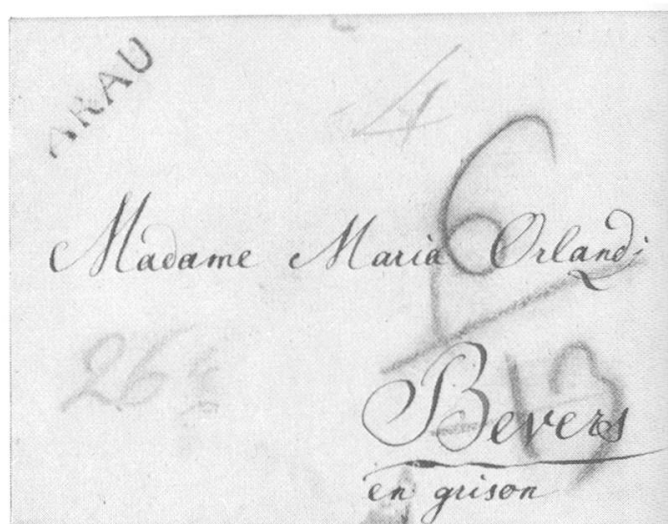 ARAU
4
6
Madame Maria Orlandi
26
13
Bevers
en grison